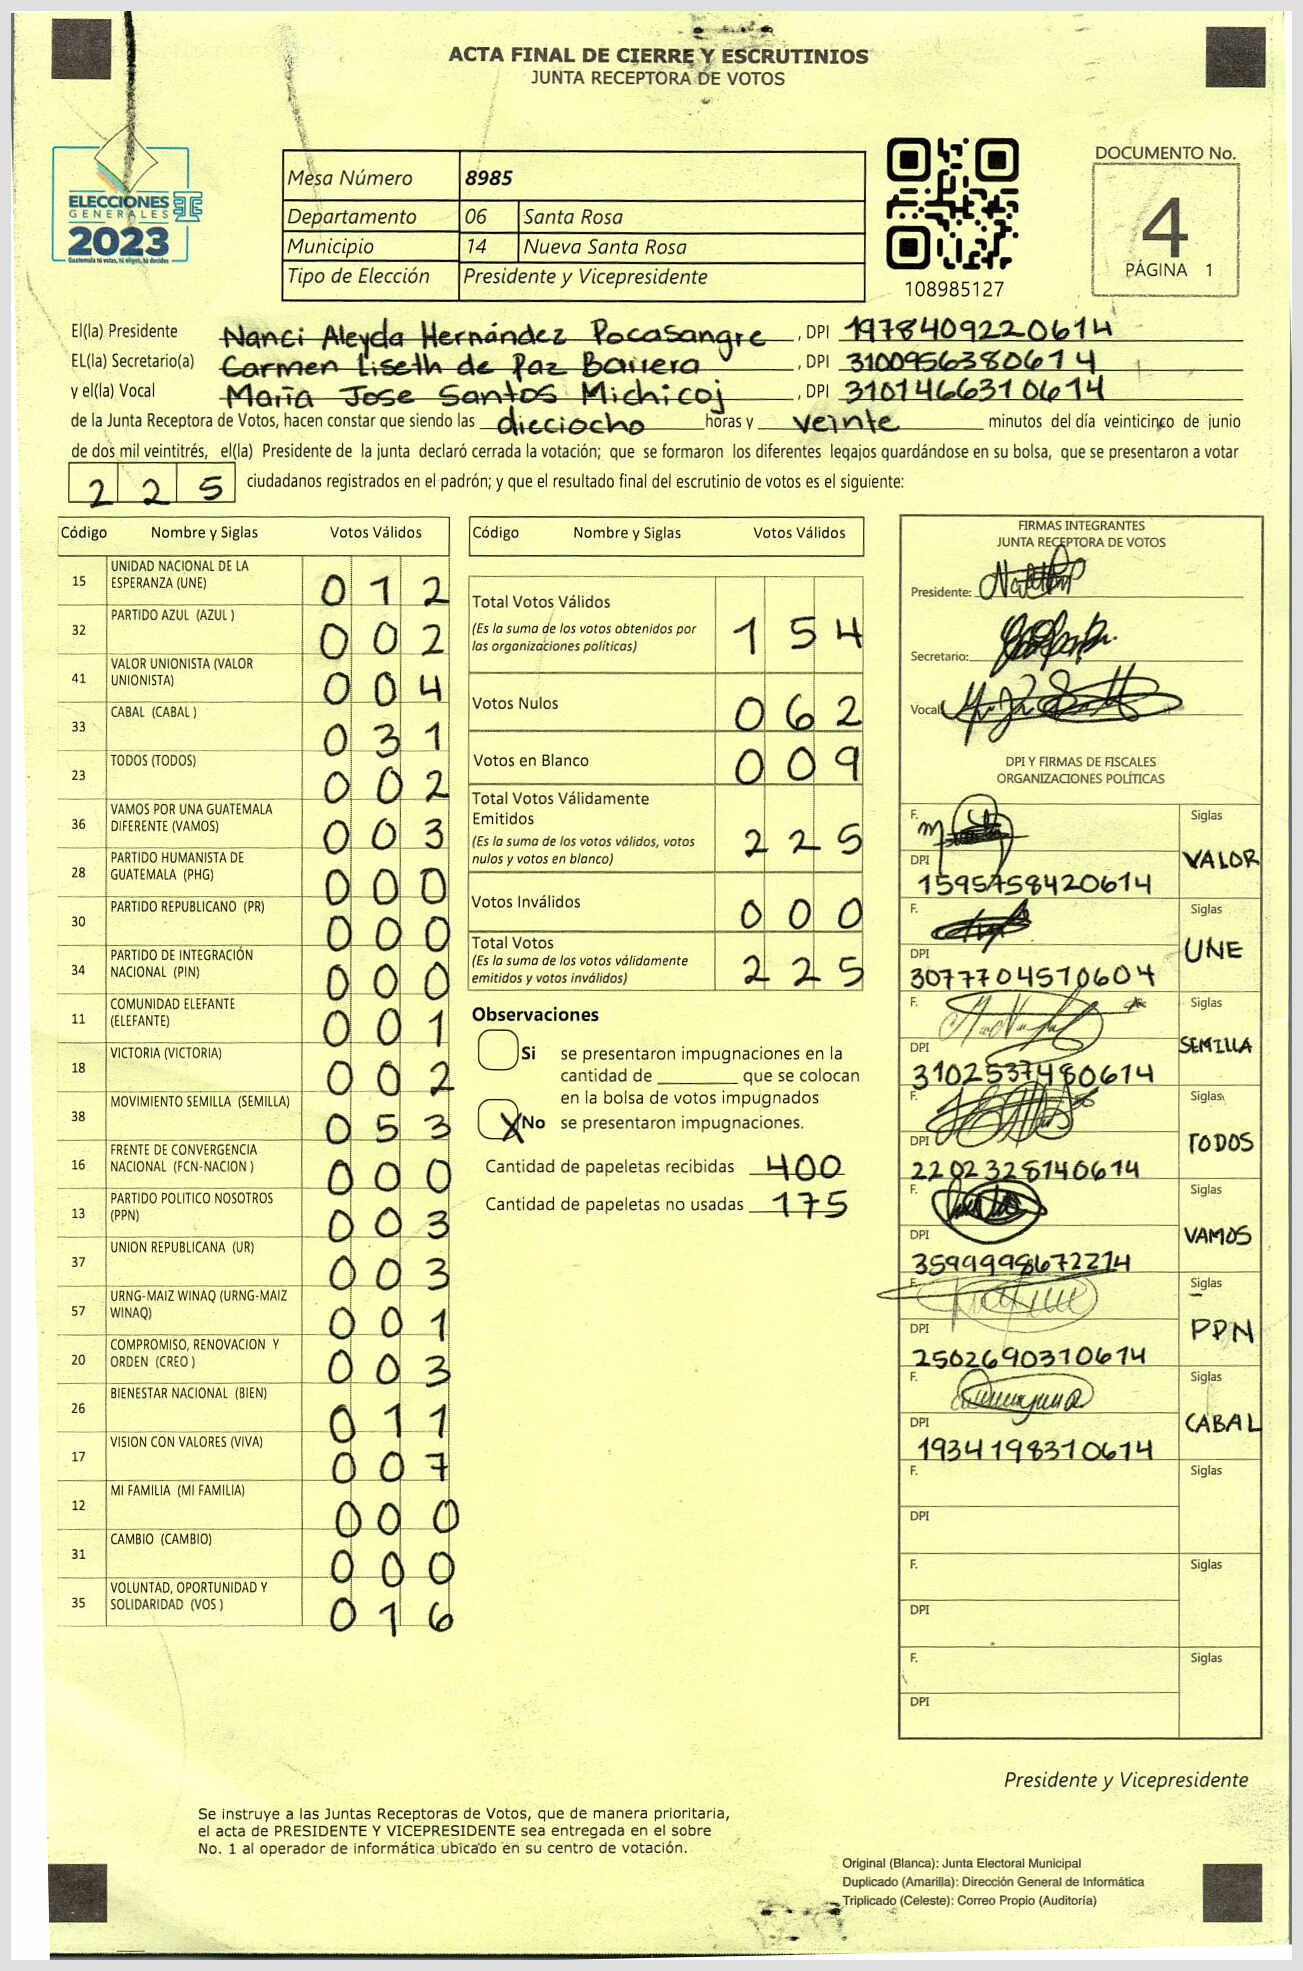 ACTA FINAL DE CIERRE Y ESCRUTINIOS
JUNTA RECEPTORA DE VOTOS
ELECCIONES
GENERALES
2023
Guatemala tú votas, tú eliges, tú decides
Mesa Número 8985
Departamento 06 Santa Rosa
Municipio 14 Nueva Santa Rosa
Tipo de Elección Presidente y Vicepresidente
108985127
DOCUMENTO No.
4
PÁGINA 1
El(la) Presidente Nanci Aleyda Hernández Pocasangre, DPI 1978409220614
EL(la) Secretario(a) Carmen Liseth de Paz Barrera, DPI 3100956380614
y el(la) Vocal María Jose Santos Michicoj, DPI 3101466310614
de la Junta Receptora de Votos, hacen constar que siendo las dieciocho horas y veinte minutos del día veinticinco de junio
de dos mil veintitrés, el(la) Presidente de la junta declaró cerrada la votación; que se formaron los diferentes legajos guardándose en su bolsa, que se presentaron a votar
225 ciudadanos registrados en el padrón; y que el resultado final del escrutinio de votos es el siguiente:
Código Nombre y Siglas Votos Válidos
15 UNIDAD NACIONAL DE LA ESPERANZA (UNE) 012
32 PARTIDO AZUL (AZUL ) 002
41 VALOR UNIONISTA (VALOR UNIONISTA) 004
33 CABAL (CABAL ) 031
23 TODOS (TODOS) 002
36 VAMOS POR UNA GUATEMALA DIFERENTE (VAMOS) 003
28 PARTIDO HUMANISTA DE GUATEMALA (PHG) 000
30 PARTIDO REPUBLICANO (PR) 000
34 PARTIDO DE INTEGRACIÓN NACIONAL (PIN) 000
11 COMUNIDAD ELEFANTE (ELEFANTE) 001
18 VICTORIA (VICTORIA) 002
38 MOVIMIENTO SEMILLA (SEMILLA) 053
16 FRENTE DE CONVERGENCIA NACIONAL (FCN-NACION ) 000
13 PARTIDO POLITICO NOSOTROS (PPN) 003
37 UNION REPUBLICANA (UR) 003
57 URNG-MAIZ WINAQ (URNG-MAIZ WINAQ) 001
20 COMPROMISO, RENOVACION Y ORDEN (CREO ) 003
26 BIENESTAR NACIONAL (BIEN) 011
17 VISION CON VALORES (VIVA) 007
12 MI FAMILIA (MI FAMILIA) 000
31 CAMBIO (CAMBIO) 000
35 VOLUNTAD, OPORTUNIDAD Y SOLIDARIDAD (VOS ) 016
Código Nombre y Siglas Votos Válidos
Total Votos Válidos 154
(Es la suma de los votos obtenidos por
las organizaciones políticas)
Votos Nulos 062
Votos en Blanco 009
Total Votos Válidamente
Emitidos 225
(Es la suma de los votos válidos, votos
nulos y votos en blanco)
Votos Inválidos 000
Total Votos 225
(Es la suma de los votos válidamente
emitidos y votos inválidos)
Observaciones
Si se presentaron impugnaciones en la
cantidad de ________ que se colocan
en la bolsa de votos impugnados
X No se presentaron impugnaciones.
Cantidad de papeletas recibidas 400
Cantidad de papeletas no usadas 175
FIRMAS INTEGRANTES
JUNTA RECEPTORA DE VOTOS
Presidente:
Secretario:
Vocal
DPI Y FIRMAS DE FISCALES
ORGANIZACIONES POLÍTICAS
F. Siglas
DPI 1595758420614 VALOR
F. Siglas
DPI 3077704510604 UNE
F. Siglas
DPI 3102537480614 SEMILLA
F. Siglas
DPI 2202328140614 TODOS
F. Siglas
DPI 3599998672214 VAMOS
F. Siglas
DPI 2502690310614 PPN
F. Siglas
DPI 1934198310614 CABAL
F. Siglas
DPI
F. Siglas
DPI
F. Siglas
DPI
Presidente y Vicepresidente
Se instruye a las Juntas Receptoras de Votos, que de manera prioritaria,
el acta de PRESIDENTE Y VICEPRESIDENTE sea entregada en el sobre
No. 1 al operador de informática ubicado en su centro de votación.
Original (Blanca): Junta Electoral Municipal
Duplicado (Amarilla): Dirección General de Informática
Triplicado (Celeste): Correo Propio (Auditoría)